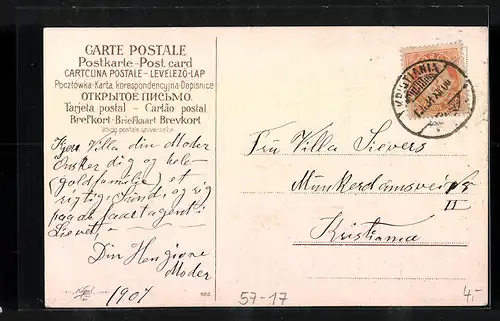 CARTE POSTALE
Postkarte–Post card
CARTOLINA POSTALE – LEVELEZŐ-LAP
Pocztówka-Karta korespondencyjna-Dopisnice
ОТКРЫТОЕ ПИСЬМО.
Tarjeta postal – Cartão postal
Brefkort-Briefkaart Brevkort
Union postale universelle
Kjære Villa din Moder
Ønsker dig og hele
(goldfamilje) et
rigtig, Sund, og rig
Din Hengivne
Moder
1907
682
KRISTIANIA
Fru Villa Sievers
Munkerdamsveien
II
Kristiania
57-17
4,-